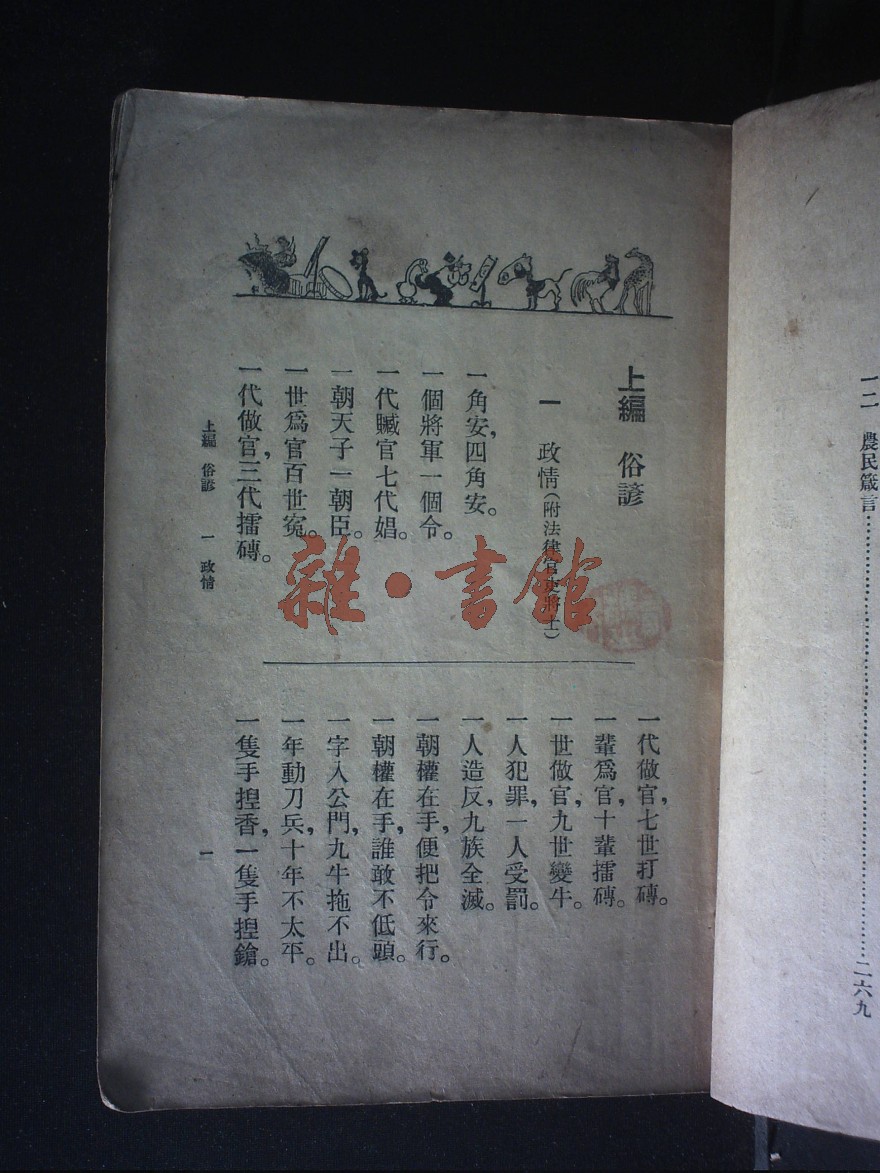 一二　農民箴言……二六九
上編　俗諺
一　政情(附法律官吏將士)
一角安，四角安。
一個將軍一個令。
一代贓官七代娼。
一朝天子一朝臣。
一世爲官百世冤。
一代做官，三代擂磚。
一代做官，七世打磚。
一輩爲官，十輩擂磚。
一世做官，九世變牛。
一人犯罪，一人受罰。
一人造反，九族全滅。
一朝權在手，便把令來行。
一朝權在手，誰敢不低頭。
一字入公門，九牛拖不出。
一年動刀兵，十年不太平。
一隻手揑香，一隻手揑鎗。
上編　俗諺　一　政情
一
雜·書館